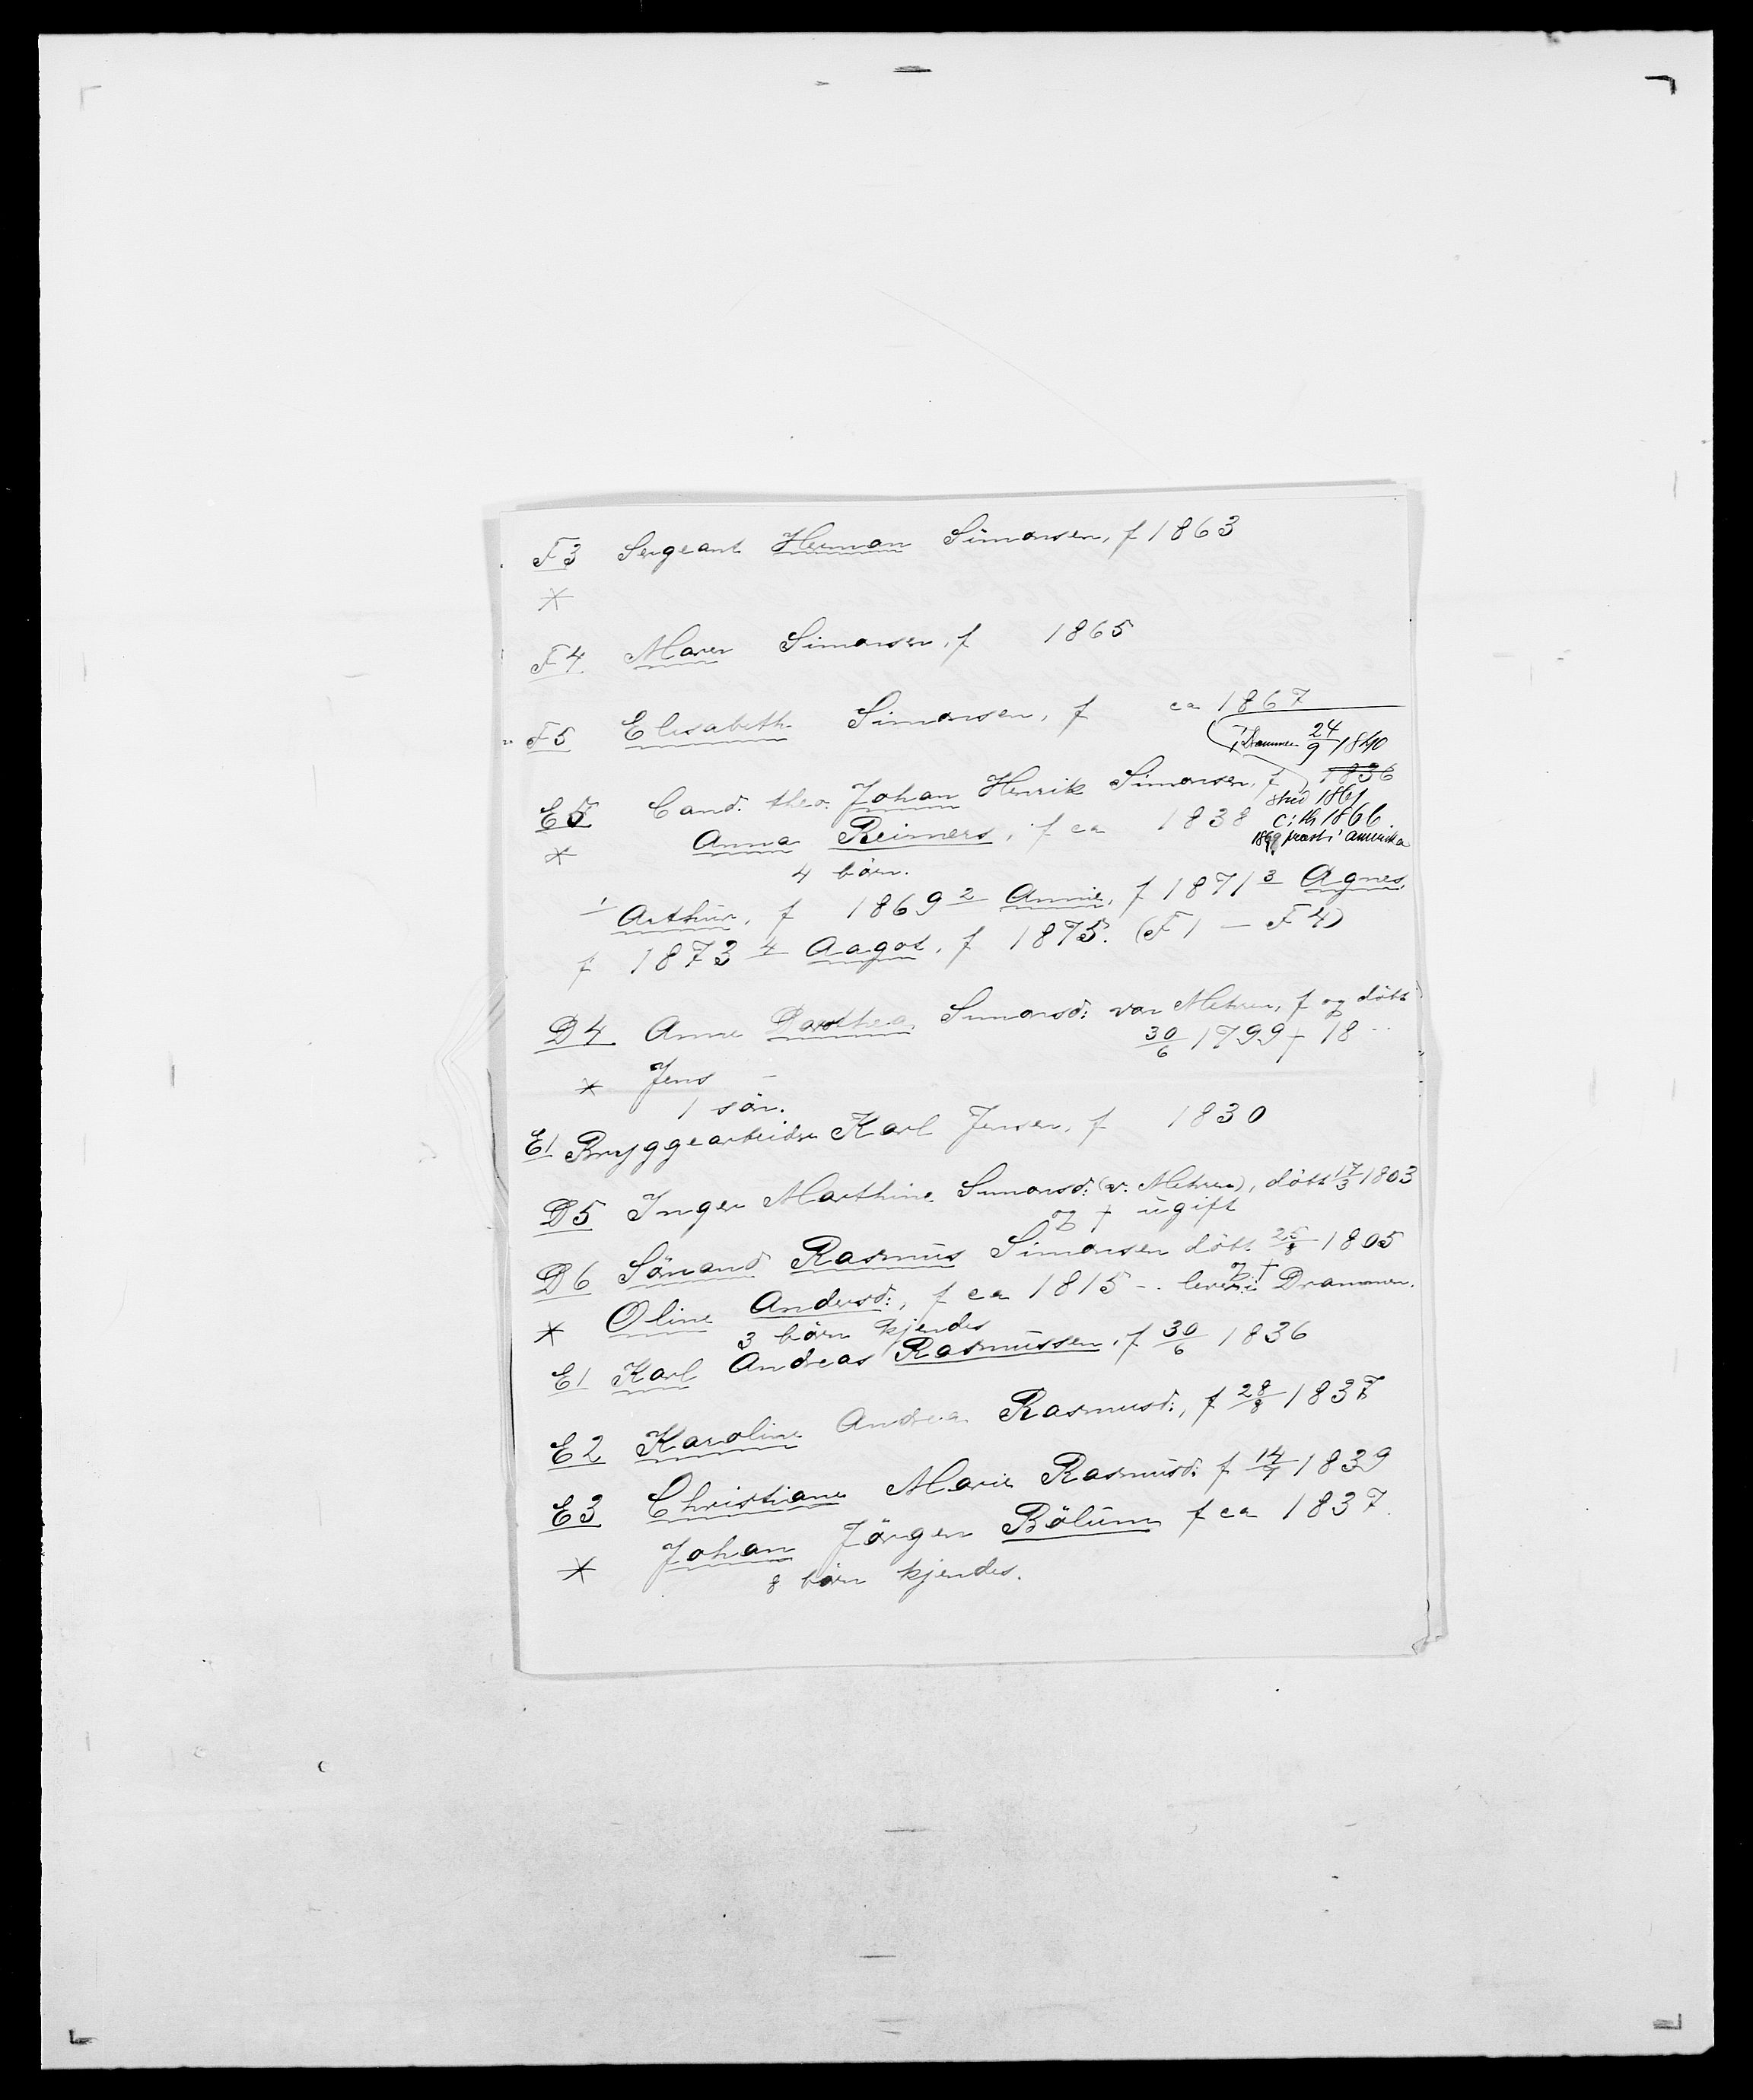 F3 Sergeant Herman Simonsen, f 1863
*
F4 Maren Simonsen, f 1865
F5 Elisabeth Simonsen, f ca 1867
i Drammen 24/9 1840
E5 Cand. theo. Johan Henrik Simonsen, f 1836
stud 1861
* Anna Reimers, f ca 1838 c. th 1866
1869 prest i Amerika
4 börn.
1 Arthur, f 1869 2 Annie, f 1871 3 Agnes,
f 1873 4 Aagot, f 1875. (F1 — F4)
D4 Anne Dorthea Simonsd: von Mehren, f og döbt
30/6 1799 † 18 --
* Jens —
1 sön.
E1 Bryggearbeider Karl Jensen, f 1830
D5 Inger Marthine Simonsd: (v. Mehren), döbt 17/3 1803
og † ugift
D6 Sömand Rasmus Simonsen döbt 25/8 1805
og †
* Oline Andersd:, f ca 1815 -. lever i Drammen.
3 börn kjendes
E1 Karl Andreas Rasmussen, f 30/6 1836
E2 Karoline Andrea Rasmusd:, f 28/8 1837
E3 Christiane Marie Rasmusd: f 14/7 1839
* Johan Jörgen Bölum f ca 1837.
8 börn kjendes.